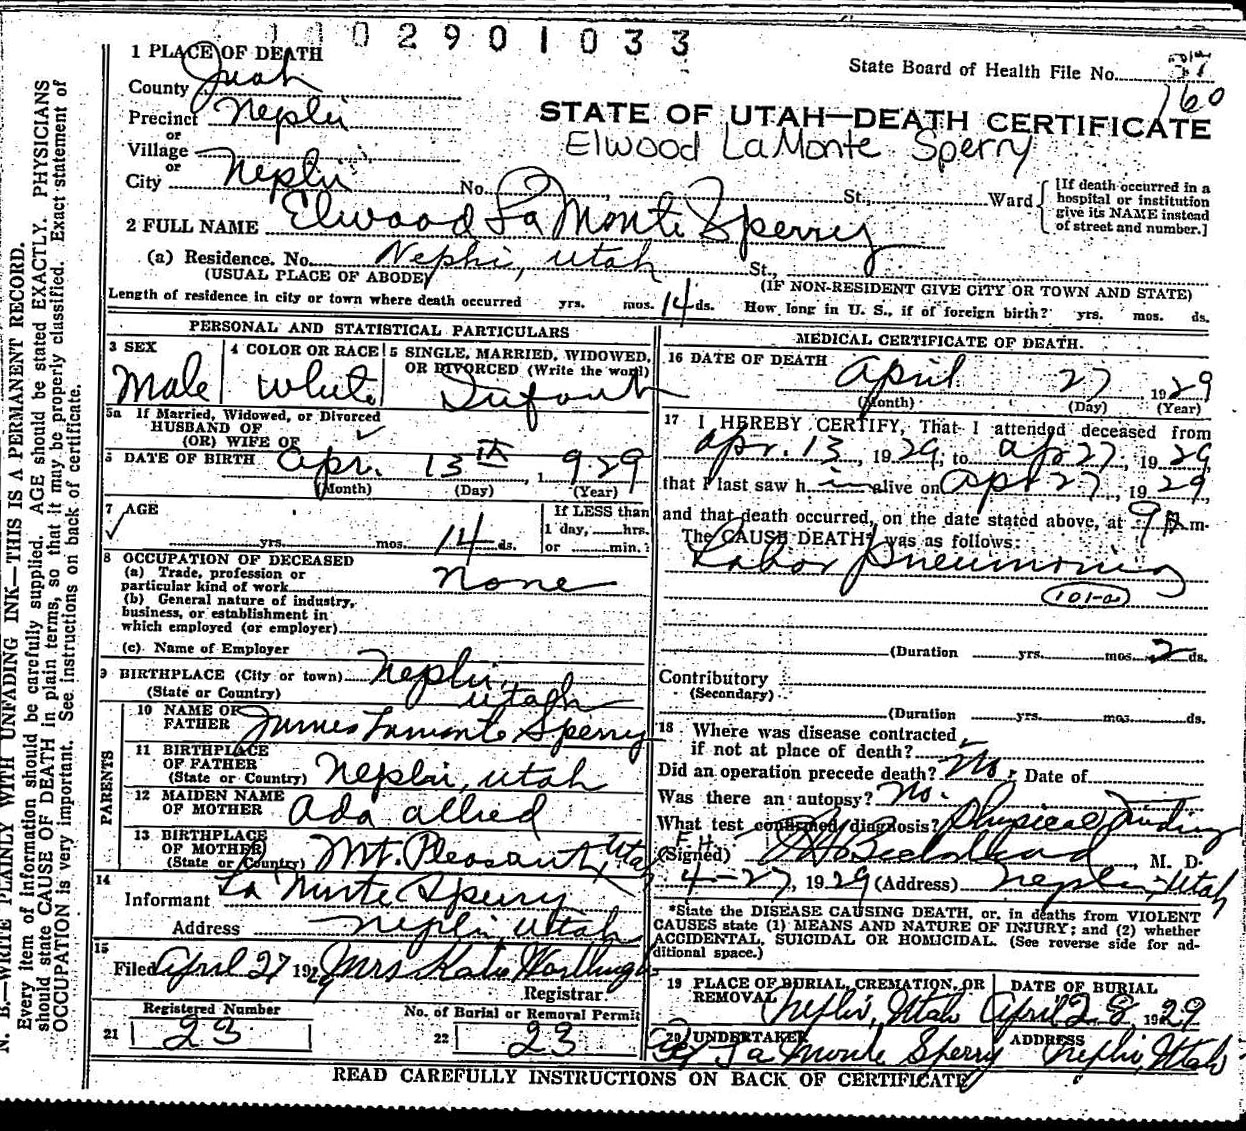 1102901033
1 PLACE OF DEATH
State Board of Health File No. 37
160
County Juab
Precinct Nephi
or
Village
or
City Nephi No. St., Ward
STATE OF UTAH—DEATH CERTIFICATE
Elwood LaMonte Sperry
[If death occurred in a
hospital or institution
give its NAME instead
of street and number.]
2 FULL NAME Elwood La Monte Sperry
(a) Residence. No. Nephi, Utah St.,
(USUAL PLACE OF ABODE) (IF NON-RESIDENT GIVE CITY OR TOWN AND STATE)
Length of residence in city or town where death occurred yrs. mos. 14 ds. How long in U. S., if of foreign birth? yrs. mos. ds.
PERSONAL AND STATISTICAL PARTICULARS
3 SEX 4 COLOR OR RACE 5 SINGLE, MARRIED, WIDOWED,
OR DIVORCED (Write the word)
Male White Infant
5a If Married, Widowed, or Divorced
HUSBAND OF
(OR) WIFE OF
6 DATE OF BIRTH Apr. 13th, 1929
(Month) (Day) (Year)
7 AGE If LESS than
1 day, hrs.
yrs. mos. 14 ds. or min.?
8 OCCUPATION OF DECEASED
(a) Trade, profession or
particular kind of work none
(b) General nature of industry,
business, or establishment in
which employed (or employer)
(c) Name of Employer
9 BIRTHPLACE (City or town) Nephi,
(State or Country) Utah
PARENTS
10 NAME OF
FATHER James Lamonte Sperry
11 BIRTHPLACE
OF FATHER
(State or Country) Nephi, Utah
12 MAIDEN NAME
OF MOTHER Ada Allred
13 BIRTHPLACE
OF MOTHER
(State or Country) Mt. Pleasant, Utah
14
Informant La Monte Sperry
Address Nephi, Utah
15
Filed April 27 1929 Mrs Kate
Registrar.
Registered Number No. of Burial or Removal Permit
21 23 22 23
MEDICAL CERTIFICATE OF DEATH.
16 DATE OF DEATH April 27 1929
(Month) (Day) (Year)
17 I HEREBY CERTIFY, That I attended deceased from
Apr. 13, 1929, to Apr 27, 1929
that I last saw h im alive on Apr 27, 1929,
and that death occurred, on the date stated above, at 9 A m.
The CAUSE DEATH* was as follows:
Labor Pneumonia
101-a
(Duration yrs. mos. 2 ds.
Contributory
(Secondary)
(Duration yrs. mos. ds.
18 Where was disease contracted
if not at place of death?
Did an operation precede death? No. Date of
Was there an autopsy? No.
What test confirmed diagnosis? Physical Finding
(Signed) , M. D.
4-27, 1929 (Address) Nephi, Utah
*State the DISEASE CAUSING DEATH, or, in deaths from VIOLENT
CAUSES state (1) MEANS AND NATURE OF INJURY; and (2) whether
ACCIDENTAL, SUICIDAL OR HOMICIDAL. (See reverse side for ad-
ditional space.)
19 PLACE OF BURIAL, CREMATION, OR
REMOVAL Nephi, Utah
DATE OF BURIAL
April 28, 1929
20 UNDERTAKER
La Monte Sperry
ADDRESS
Nephi, Utah
READ CAREFULLY INSTRUCTIONS ON BACK OF CERTIFICATE
N. B.—WRITE PLAINLY WITH UNFADING INK—THIS IS A PERMANENT RECORD.
Every item of information should be carefully supplied. AGE should be stated EXACTLY. PHYSICIANS
should state CAUSE OF DEATH in plain terms, so that it may be properly classified. Exact statement of
OCCUPATION is very important. See instructions on back of certificate.